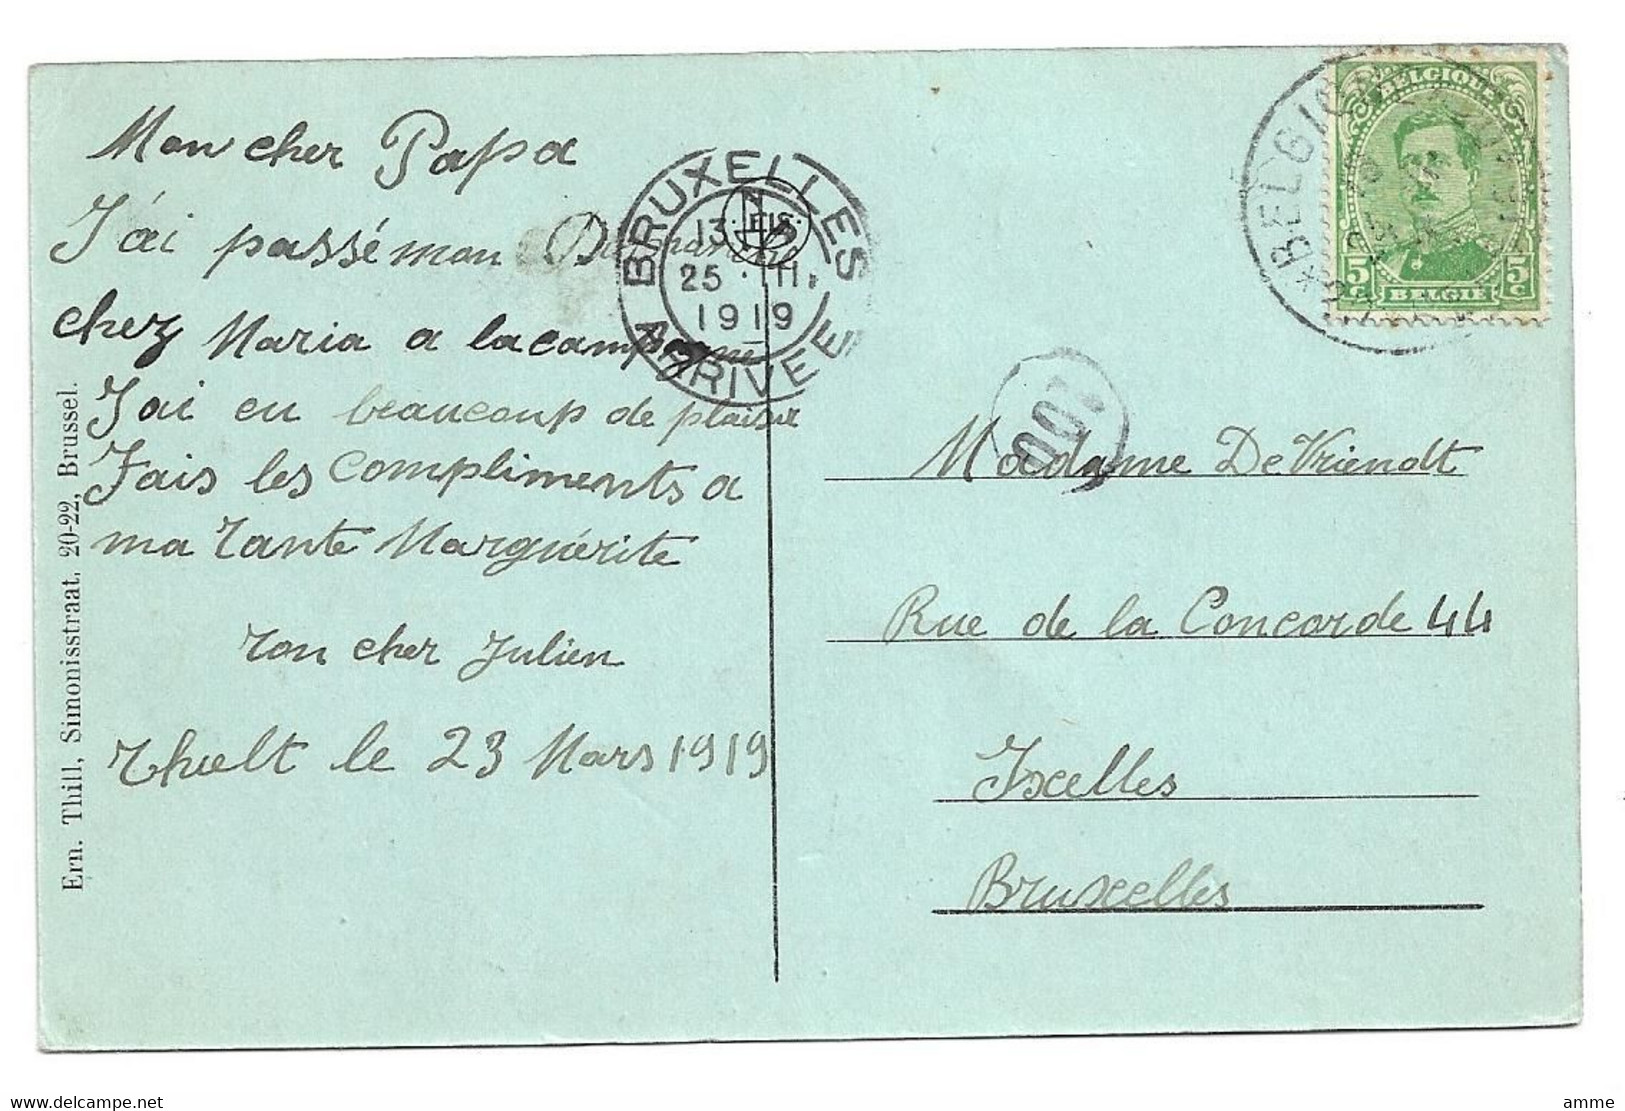 Mon cher Papa
J'ai passé mon Dimanche
chez Maria a la campagne
J'ai eu beaucoup de plaisir
Fais les compliments a
ma Tante Marguérite
Ton cher Julien
Thielt le 23 Mars 1919
Ern. Thill, Simonisstraat, 20-22, Brussel.
BRUXELLES
13
25 III
1919
ARRIVEE
BELGIQUE
5c 5c
BELGIE
BELGICA
Madame De Vriendt
Rue de la Concorde 44
Ixelles
Bruxelles
delcampe.net
amme